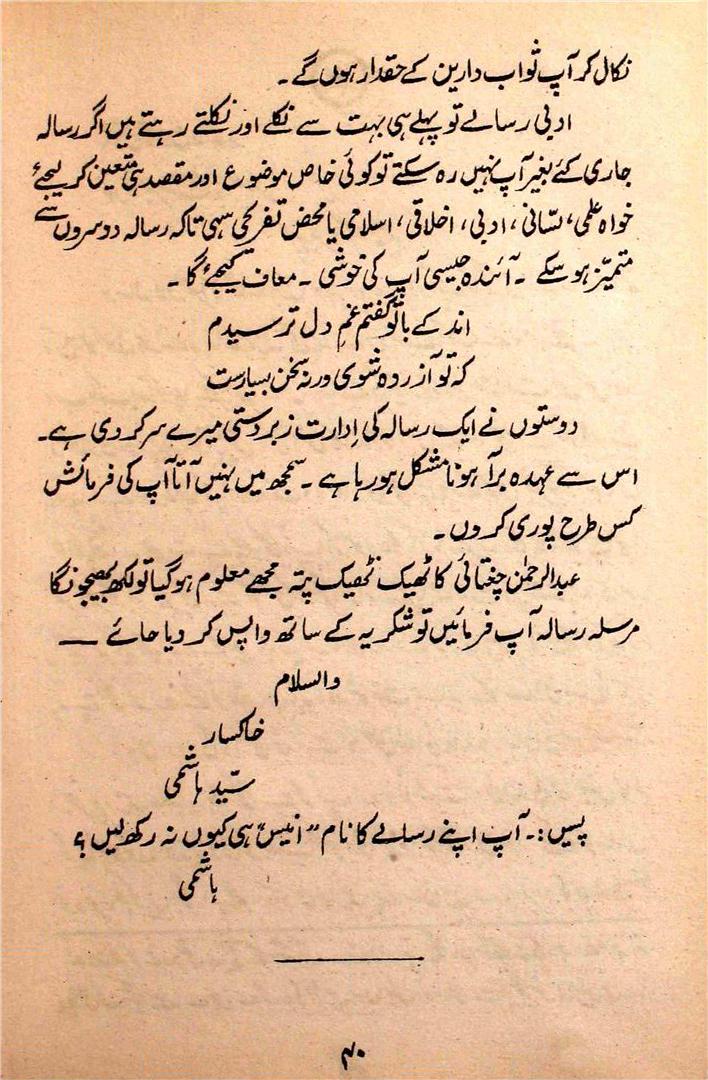 نکال کر آپ ثواب دارین کے حقدار ہوں گے۔
ادبی رسالے تو پہلے ہی بہت سے نکلے اور نکلتے رہتے ہیں اگر رسالہ
جاری کئے بغیر آپ نہیں رہ سکتے تو کوئی خاص موضوع اور مقصد ہی متعین کر لیجئے
خواہ علمی، لسّانی، ادبی، اخلاقی، اسلامی یا محض تفریحی سہی تاکہ رسالہ دوسروں سے
متمیّز ہو سکے ۔ آئندہ جیسی آپ کی خوشی ۔ معاف کیجئے گا۔
اند کے باتو گفتم غمِ دل ترسیدم
کہ تو آزردہ شوی ورنہ سخن بسیارست
دوستوں نے ایک رسالہ کی اِدارت زبردستی میرے سر کر دی ہے۔
اس سے عہدہ برآ ہونا مشکل ہو رہا ہے ۔ سمجھ میں نہیں آتا آپ کی فرمائش
کس طرح پوری کروں۔
عبدالرحمٰن چغتائی کا ٹھیک ٹھیک پتہ مجھے معلوم ہو گیا تو لکھ بھیجونگا
مرسلہ رسالہ آپ فرمائیں تو شکریہ کے ساتھ واپس کر دیا جائے —
والسلام
خاکسار
سیّد ہاشمی
پسیں:۔ آپ اپنے رسالے کا نام "انیس" ہی کیوں نہ رکھ لیں؟
ہاشمی
۴۰